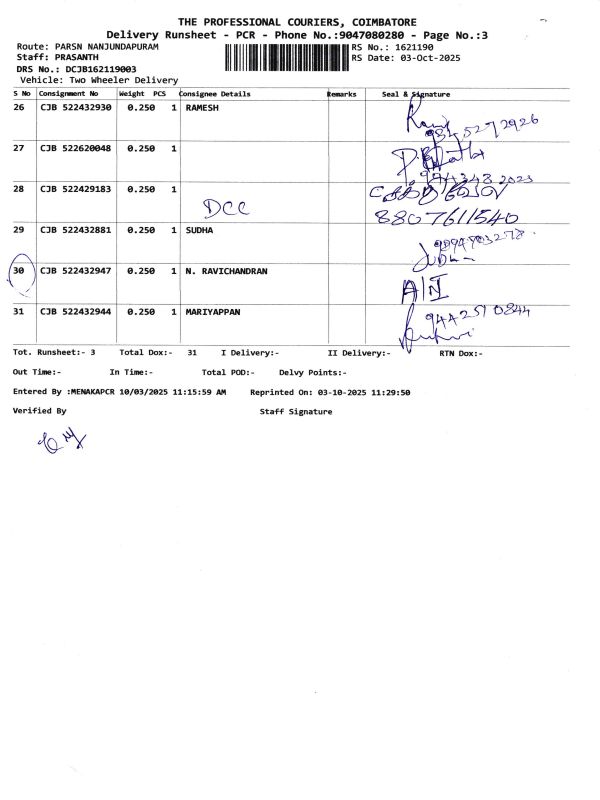 THE PROFESSIONAL COURIERS, COIMBATORE
Delivery Runsheet - PCR - Phone No.:9047080280 - Page No.:3
Route: PARSN NANJUNDAPURAM
RS No.: 1621190
Staff: PRASANTH
RS Date: 03-Oct-2025
DRS No.: DCJB162119003
Vehicle: Two Wheeler Delivery
S No Consignment No Weight PCS Consignee Details Remarks Seal & Signature
26 CJB 522432930 0.250 1 RAMESH
27 CJB 522620048 0.250 1
28 CJB 522429183 0.250 1
DCC
8807611540
29 CJB 522432881 0.250 1 SUDHA
30 CJB 522432947 0.250 1 N. RAVICHANDRAN
31 CJB 522432944 0.250 1 MARIYAPPAN
9442510844
Tot. Runsheet:- 3 Total Dox:- 31 I Delivery:- II Delivery:- RTN Dox:-
Out Time:- In Time:- Total POD:- Delvy Points:-
Entered By :MENAKAPCR 10/03/2025 11:15:59 AM Reprinted On: 03-10-2025 11:29:50
Verified By Staff Signature